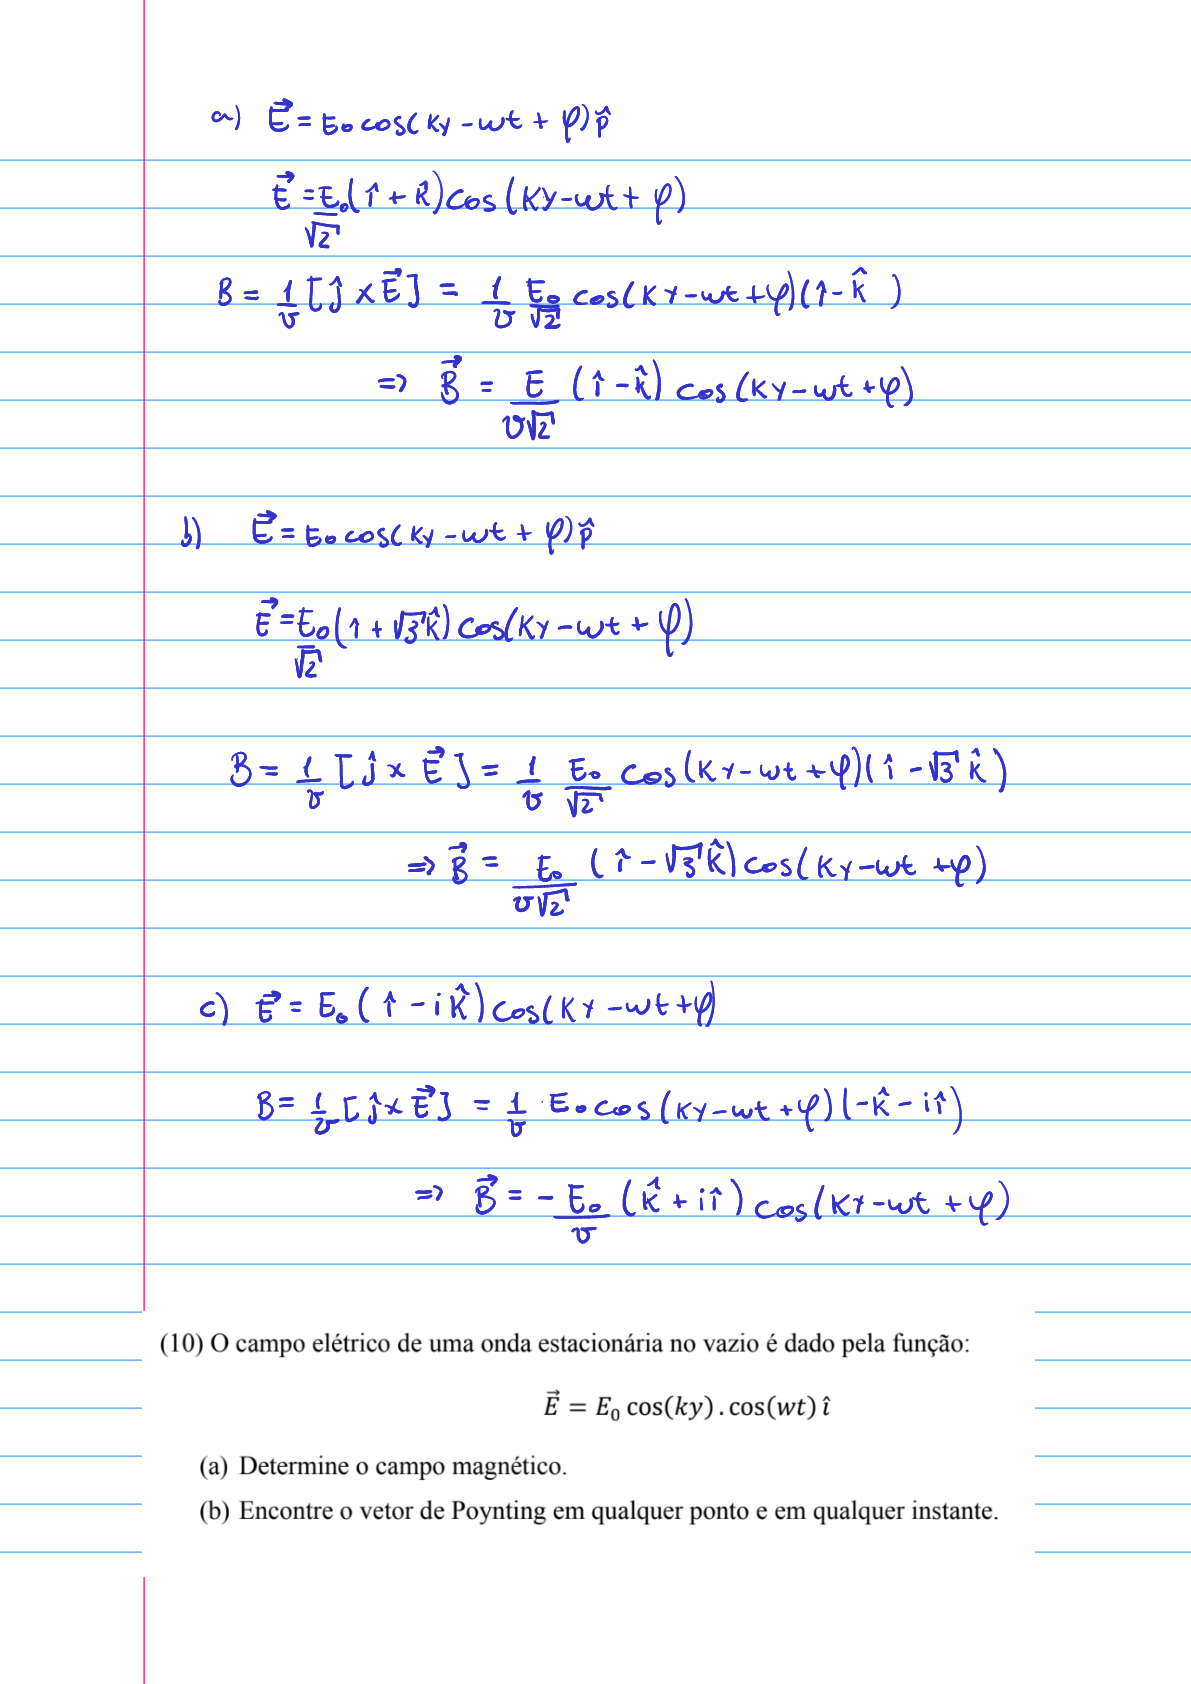 a) E⃗ = E₀ cos(ky - wt + φ) p̂
E⃗ = E₀/√2 (î + k̂) cos(ky - wt + φ)
B = 1/v [ĵ × E⃗] = 1/v E₀/√2 cos(ky - wt + φ)(î - k̂)
=> B⃗ = E/(v√2) (î - k̂) cos(ky - wt + φ)
b) E⃗ = E₀ cos(ky - wt + φ) p̂
E⃗ = E₀/√2 (î + √3 k̂) cos(ky - wt + φ)
B = 1/v [ĵ × E⃗] = 1/v E₀/√2 cos(ky - wt + φ)(î - √3 k̂)
=> B⃗ = E₀/(v√2) (î - √3 k̂) cos(ky - wt + φ)
c) E⃗ = E₀ (î - i k̂) cos(ky - wt + φ)
B = 1/v [ĵ × E⃗] = 1/v · E₀ cos(ky - wt + φ)(-k̂ - i î)
=> B⃗ = - E₀/v (k̂ + i î) cos(ky - wt + φ)
(10) O campo elétrico de uma onda estacionária no vazio é dado pela função:
E⃗ = E₀ cos(ky) . cos(wt) î
(a) Determine o campo magnético.
(b) Encontre o vetor de Poynting em qualquer ponto e em qualquer instante.